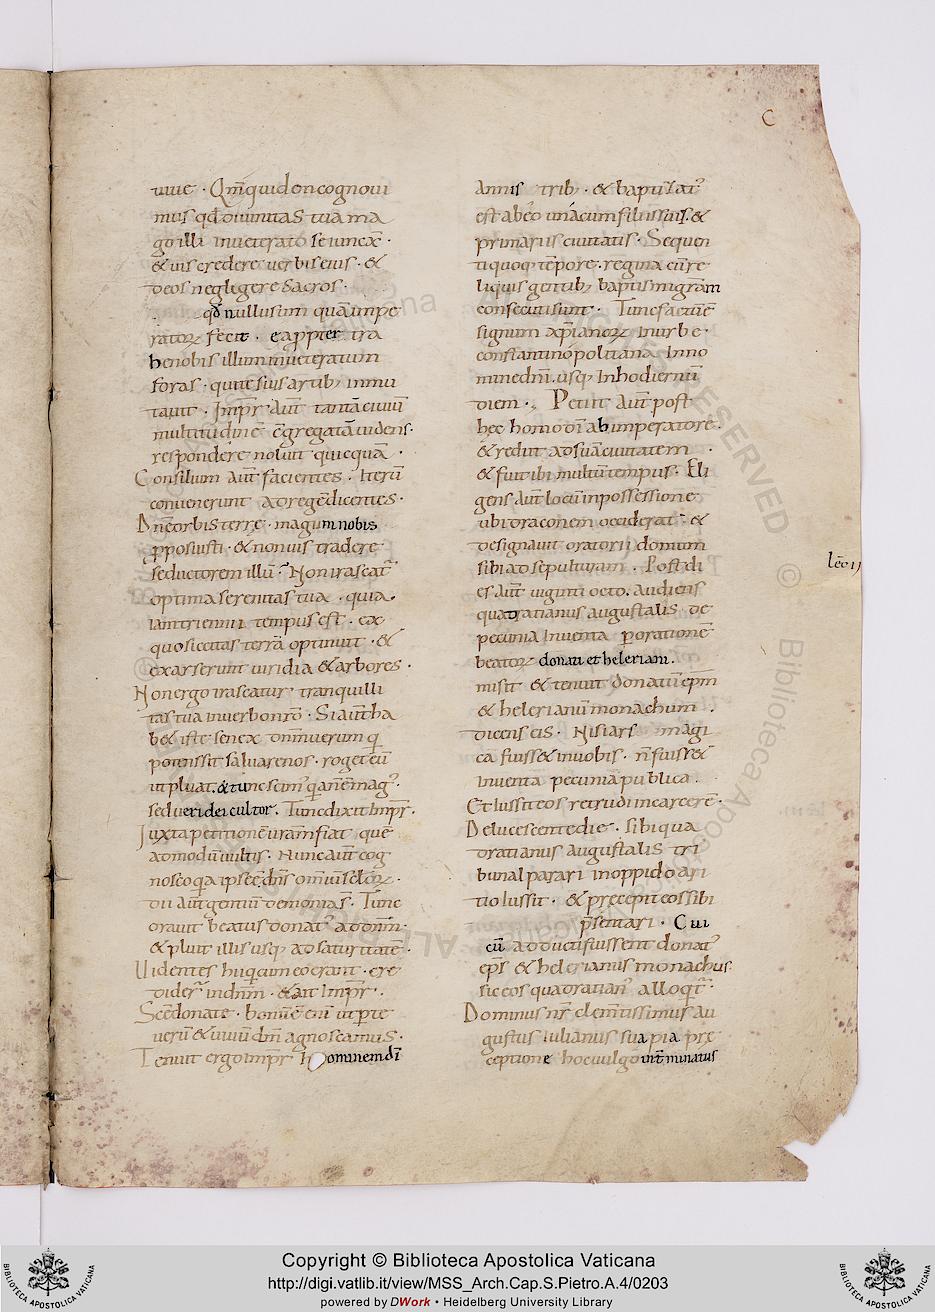 C
uiue · Qm̄ quidem cognoui
mus qđ diuinitas tua ma
go illi inueterato se iunext ·
& uis credere uerbis eius · &
deos neglegere sacros ·
qđ nullus um quā impe
ratoꝝ fecit · eapp̄ter tra
he nobis illum inueteratum
foras · qui te suis artib; inmu
tauit · Impr̄ aut̄ tantā ciuiū
multitudinē c̄gregatā uidens ·
respondere noluit quicquā ·
Consilium aut̄ facientes · Iterū
conuenerunt ad regē dicentes ·
Dn̄e orbis terrę · magum nobis
p̄posuisti · & non uis tradere
seductorem illū · Non irascat᷑
optima serenitas tua · quia
iam triennii tempus est · ex
quo siccitas terrā optinuit · &
exarserunt uiridia & arbores ·
Non ergo irascatur tranquilli
tas tua in uerbo nr̄o · Si aut̄ ha
b& iste senex dn̄m uerum q
potuissit saluare nos · roget eū
ut pluat · & tunc scim᷒ qa non ē mag᷒ ·
sed ueri dei cultor · Tunc dixit Impr̄ ·
Iuxta petitionē uram̄ fiat quē
admodū uultis · Nunc aut̄ cog
nosco qa ipse ē dn̄s omniū sc̄loꝝ ·
dii aut̄ gentiū demonias · Tunc
orauit beatus donat᷒ ad dn̄m ·
& pluit illis usq; ad saturitatē ·
Uidentes hii qui cum eo erant · cre
dider᷑ in dn̄m · & ait Impr̄ ·
Sc̄e donate · bonum ē enī ut per te
uerū & uiuū dm̄ agnoscamus ·
Tenuit ergo impr̄ hominem dī
annis trib; · & baptizat᷒
est ab eo una cum filiis suis · &
primariis ciuitatis · Sequen
ti quoq; tēpore · regina cū re
liquis gentib; baptismi grām
consecuti sunt · Tunc factū ē
signum xp̄ianoꝝ In urbe
constantinopolitana In no
mine dn̄i usq; In hodiernū
diem · Petiit aut̄ post
hec homo dī ab imperatore ·
& rediit ad suā ciuitatem
& fuit ibi multū tempus · Eli
gens aut̄ locū in possessione
ubi draconem occiderat · &
designauit oratorii domum
sibi ad sepulturam · Post di
es aut̄ uiginti octo · audiens
quadratianus augustalis de
pecunia Inuenta p orationē
beatoꝝ donati et heleriani ·
misit & tenuit donatū ep̄m
& helerianū monachum ·
dicens eis · Nisi ars magi
ca fuiss& in uobis · n̄ fuiss&
inuenta pecunia publica ·
Et iussit eos retrudi in carcerē ·
Delucescente die · sibi qua
dratianus augustalis tri
bunal parari in oppido ari
tio iussit · & precepit eos sibi
p̄sentari · Cui
cū adducti fuissent donat᷒
ep̄s & helerianus monachus
sic eos quadratian᷒ alloq̄t᷑ ·
Dominus nr̄ clem̄tissimus au
gustus iulianus sua pia prę
ceptione hoc uulgo int̄minatus
lēc ii
Copyright © Biblioteca Apostolica Vaticana
http://digi.vatlib.it/view/MSS_Arch.Cap.S.Pietro.A.4/0203
powered by DWork • Heidelberg University Library